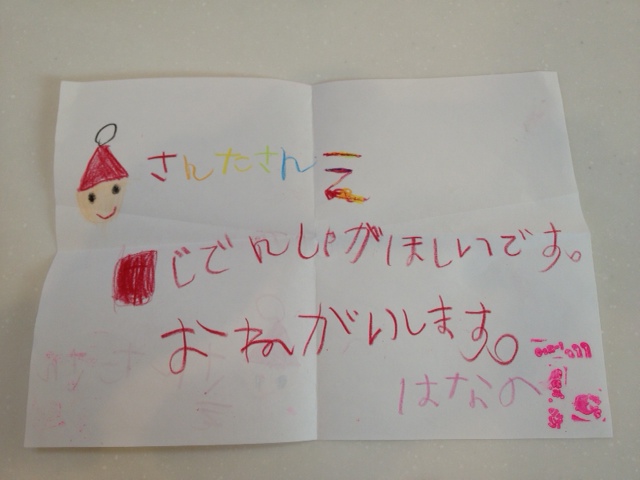 さんたさんえ
じでんしゃがほしいです。
おねがいします。
はなの